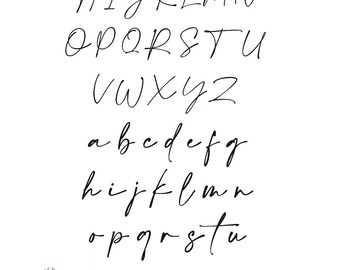 H I J K L M N
O P Q R S T U
V W X Y Z
a b c d e f g
h i j k l m n
o p q r s t u